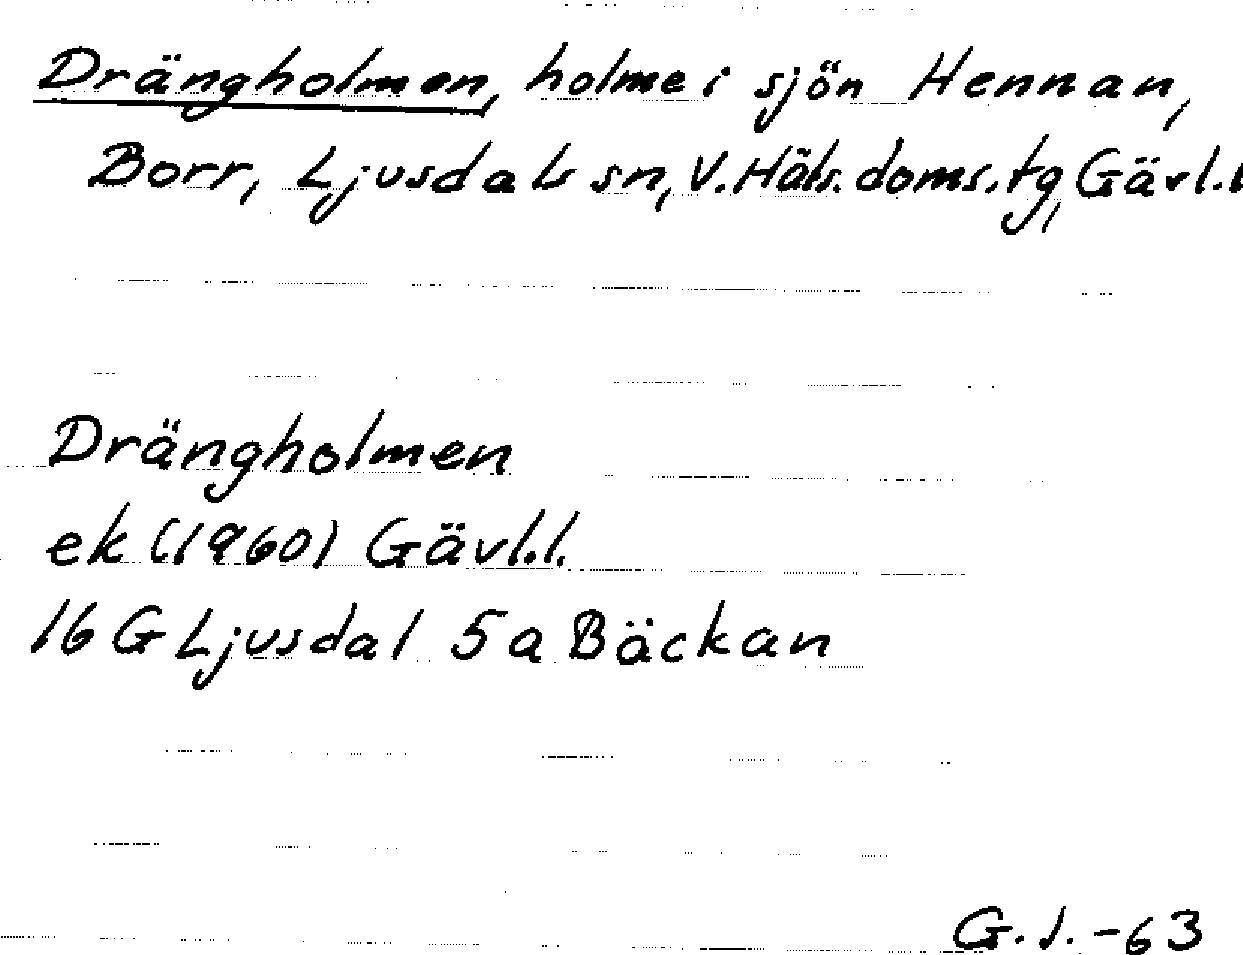 Drängholmen, holme i sjön Hennan,
Borr, Ljusdals sn, V. Häls. doms. tg, Gävl. l
Drängholmen
ek (1960) Gävl.l.
16 G Ljusdal 5 a Bäckan
G. J. -63